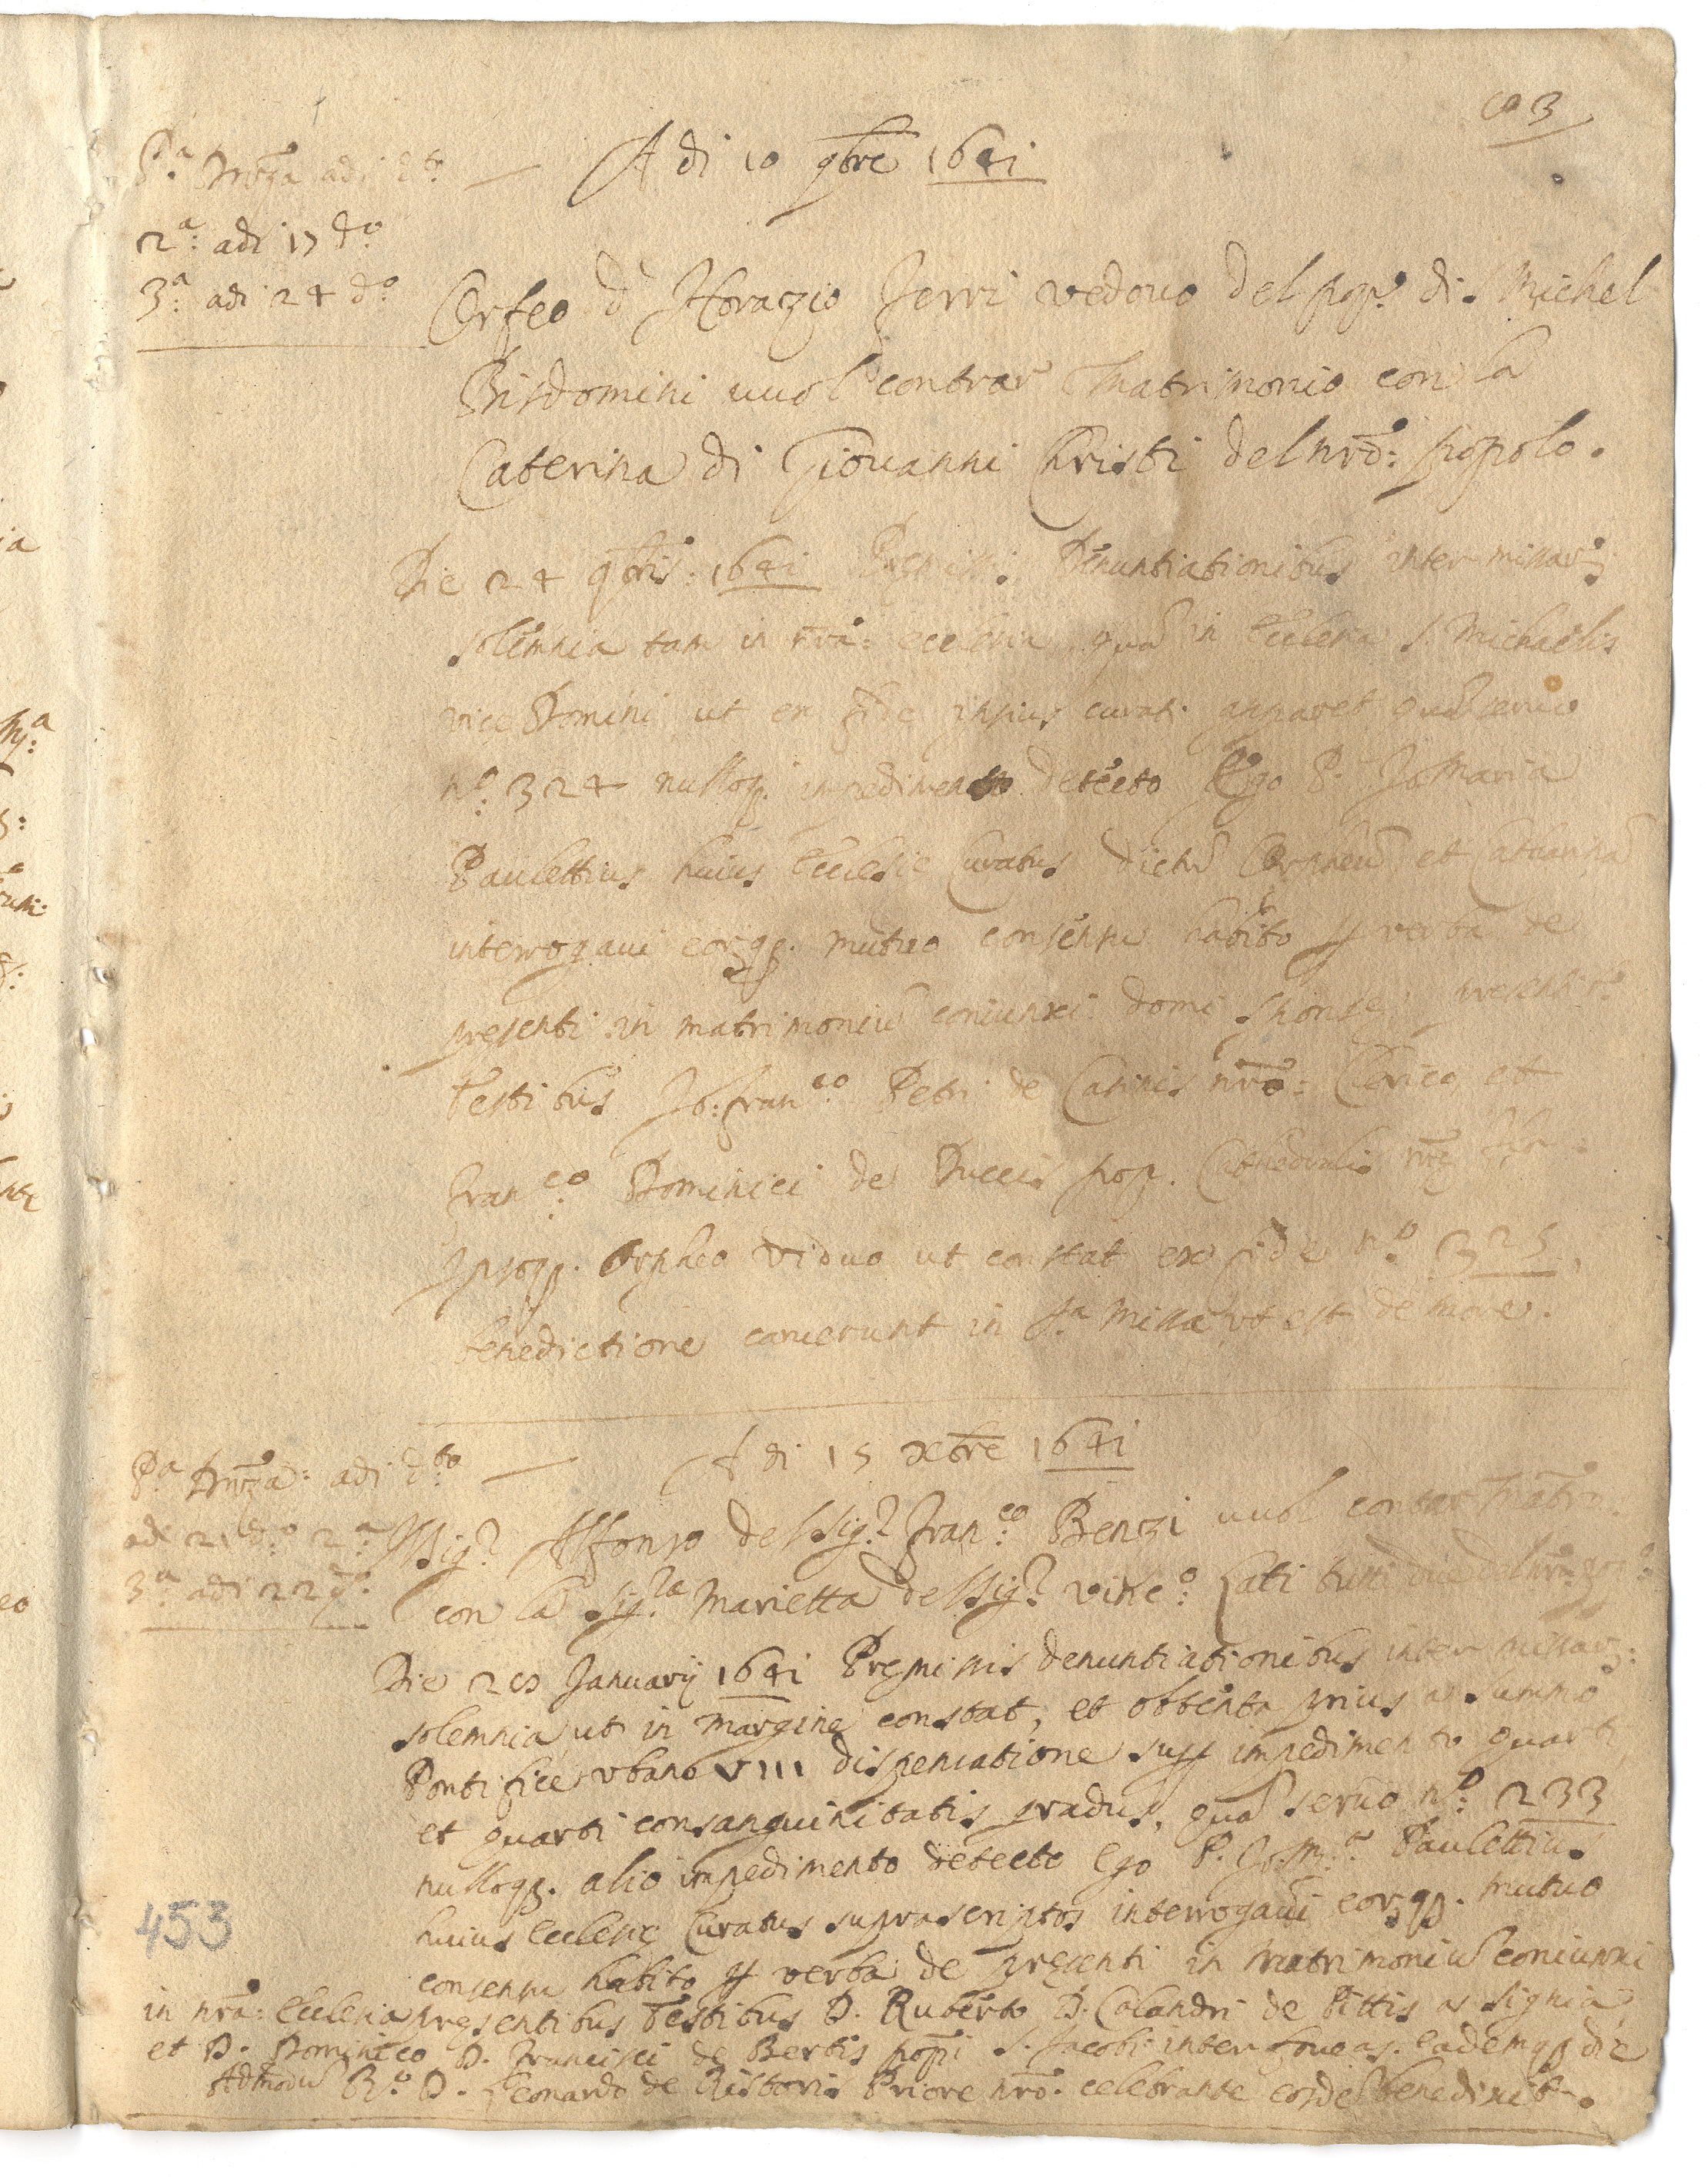 83
A di 10 9bre 1641
P.a Dnvza adi d.to
2.a adi 17 d.o
3.a adi 24 d.o
Orfeo d' Horazio Ferri vedouo del pop.o di S Michel
Bisdomini vuol contrar Matrimonio con la
Caterina di Giouanni Christi del nro: popolo.
Die 24 9bris: 1641 Premissis Denuntiationibus inter missar.
solemnia tam in nra: ecclesia, qua in Ecclesia S. Michaelis
vice Domini ut ex fide ipsius curati apparet qua servo
n.o 324 nulloq. impedimento detecto Ego P. Jo Maria
Paulettius huius Ecclesie Curatus dictu Orpheu et Catharina
interrogaui eorqq. mutuo consensu habito p verba de
presenti in matrimoniu coniunxi domi sponse, presentib.
Testibus Jo: Fran.co Petri de Catinis nro: Clerico et
Fran.co Dominici de Puccis pop. Cathedralis
Ipsoqq. Orpheo viduo ut constat ex fide n.o 325
benedictione caruerunt in S.a Missa ut est de more.
A di 15 Xbre 1641
P.a Dnvza: adi d.to
adi 21 d.o 2.a
3.a adi 22 d.o
Il Sig.r Alfonso del Sig.r Fran.co Benzi vuol contrar Matrio
con la Sig.ra Marietta del Sig.r Vinc.o Lati tutti due del nro: pop.o
Die 28 Januarij 1641 Premissis denuntiationibus inter missar.
solemnia ut in margine constat, et obtenta prius a Summo
Pontifice Vrbano VIII dispensatione sup impedimento quarti
et quarti consanguinitatis gradus, qua servo n.o 233
nulloqq. alio impedimento detecto Ego P. Jo: M.a Paulettius
huius Ecclesie Curatus suprascriptos interrogaui eorqq. mutuo
consensu habito p verba de presenti in matrimoniu coniunxi
in nra: Ecclesia presentibus Testibus D. Ruberto D. Calandri de Pittis a Signia
et D. Dominico D. Francisci de Bertis pop.i S. Jacobi inter foueas. eademqq die
Admodu R.o D. Leonardo de Ristoris Priore nro. celebrante eosde benedixit.
453